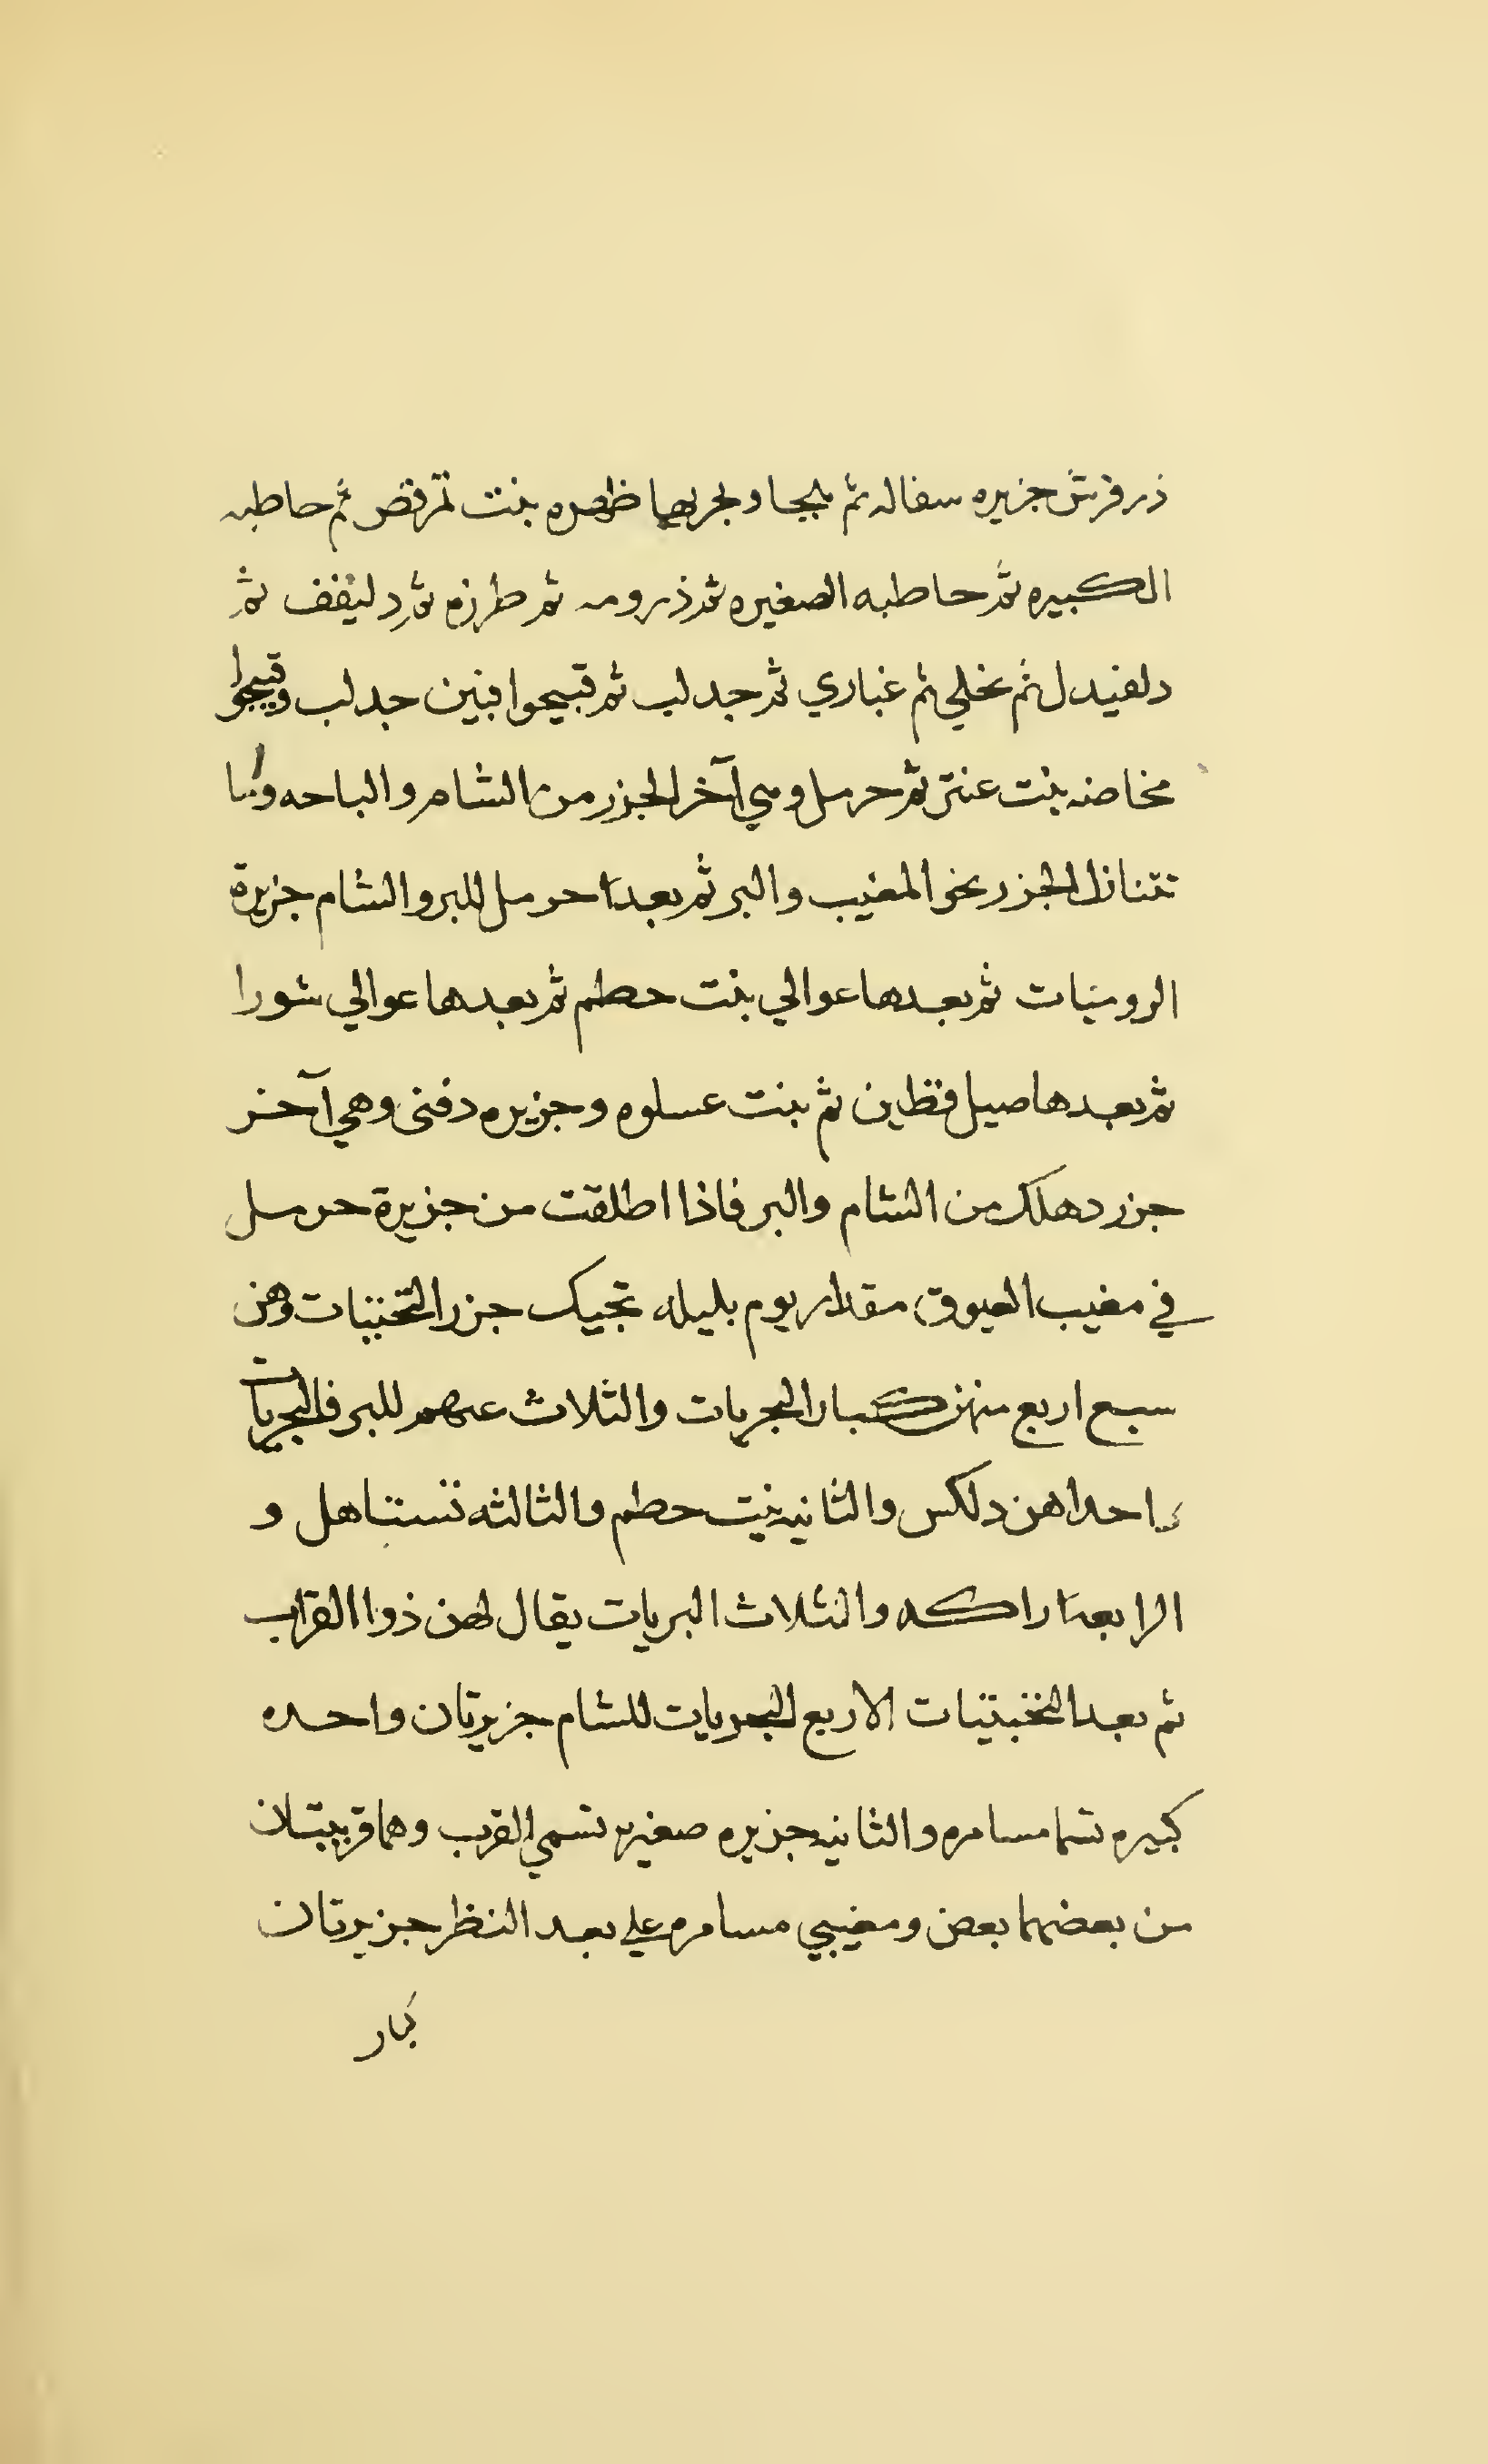 ذرفرش جزيره سفاله ثم بلجا وبحريها ظهره بنت ترقص ثم حاطبه
الكبيره ثم حاطبه الصغيره ثم ذرومه ثم طرزم ثم دليفف ثم
دلفيدل ثم نخلي ثم غباري ثم جدلب ثم قبيحوا فبين جدلب وقبيحوا
مخاضه بنت عنتر ثم حرمل وهي آخر الجزر من الشام والباحه
تتنازل الجزر نحو المغيب والبر ثم بعد حرمل للبر والشام جزيرة
الروميات ثم بعدها عوالي بنت حطم ثم بعدها عوالي شورا
ثم بعدها صيل فظين ثم بنت عسلوه وجزيره دفنى وهي آخر
جزر دهلك من الشام والبر فاذا اطلقت من جزيرة حرمل
في مغيب العيوق مقدار يوم بليله تجيك جزر التختبيات وهن
سبع اربع منهن كبار البحريات والثلاث عنهم للبر فالبحريات
احداهن دلكس والثانيه بنت حطم والثالثه تستاهل و
الرابعة راكه والثلاث البريات يقال لهن ذوا القراب
ثم بعد التختبيات الاربع البحريات للشام جزيرتان واحده
كبيره تسما مسامره والثانيه جزيره صغيره تسمي القرب وهما قريبتان
من بعضهما بعض ومغيبي مسامره علي بعد النظر جزيرتان
كبار